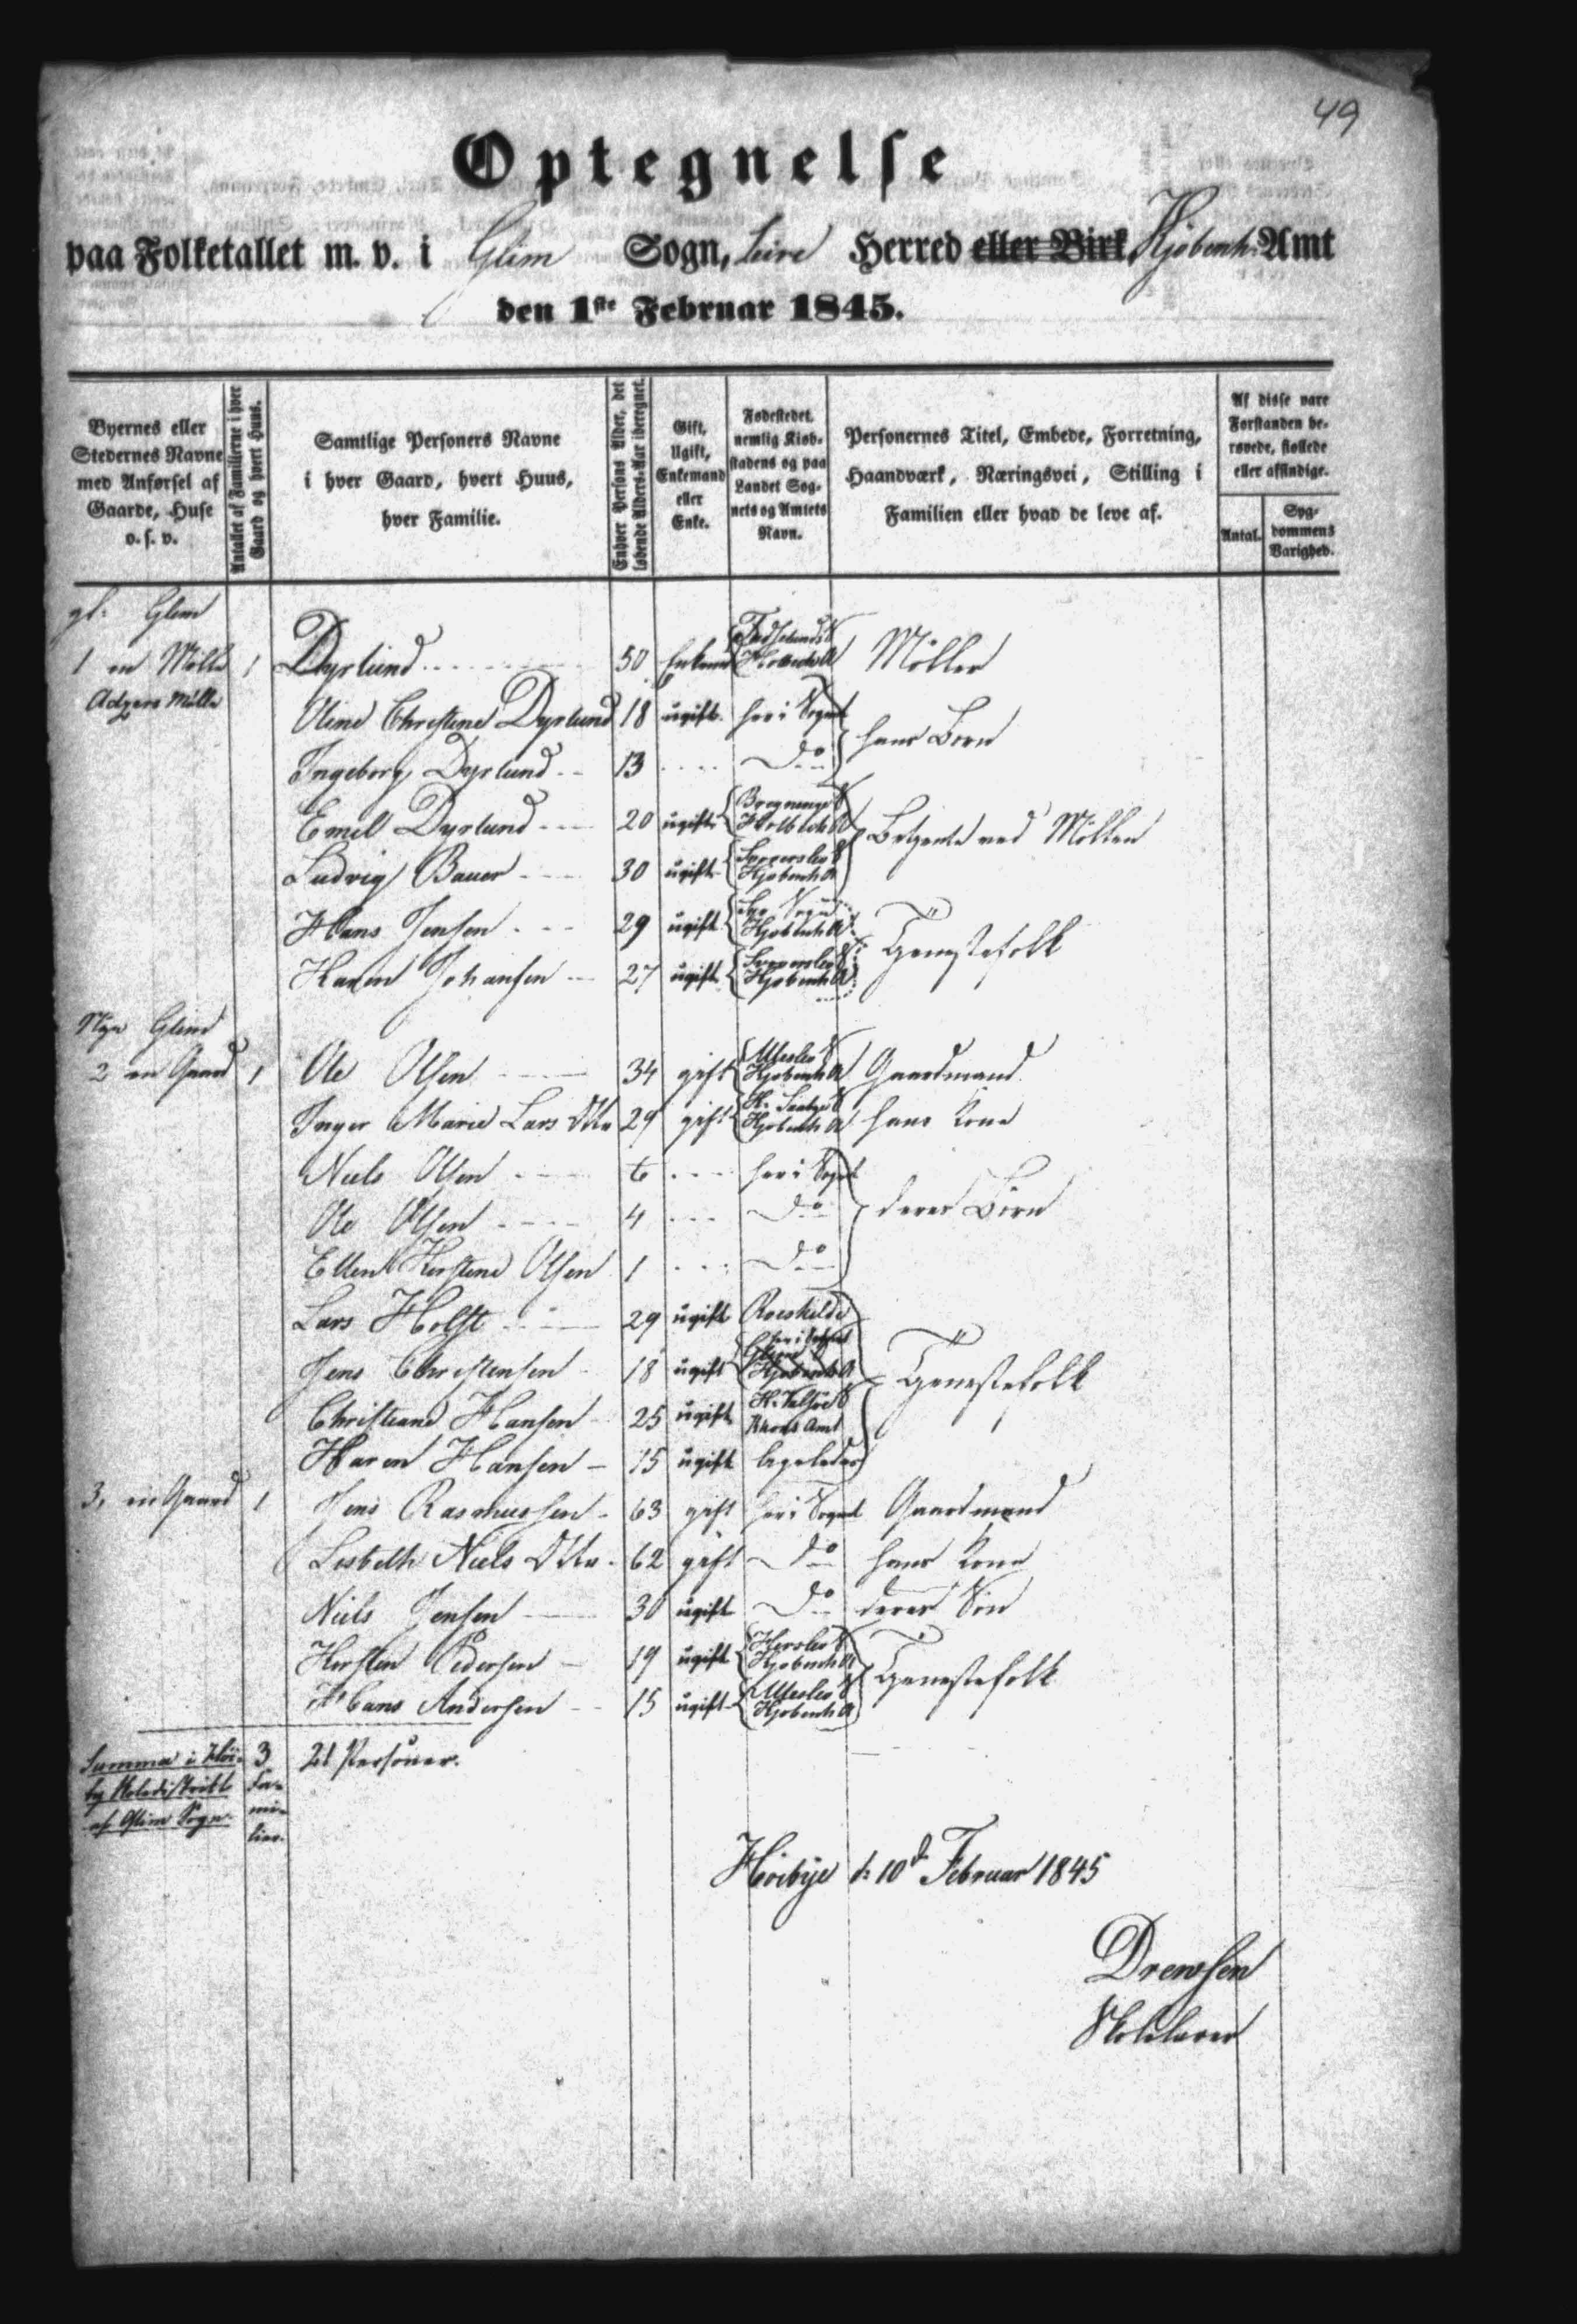 49
Optegnelse
paa Folketallet m. v. i Glim Sogn, Leire Herred eller Birk, Kjøbenh. Amt
den 1ste Februar 1845.
Byernes eller Stedernes Navne med Anførsel af Gaarde, Huse o. s. v.
Antallet af Familierne i hver Gaard og hvert Huus.
Samtlige Personers Navne i hver Gaard, hvert Huus, hver Familie.
Enhver Persons Alder, det løbende Alders-Aar iberegnet.
Gift, Ugift, Enkemand eller Enke.
Fødestedet, nemlig Kiøbstadens og paa Landet Sognets og Amtets Navn.
Personernes Titel, Embede, Forretning, Haandværk, Næringsvei, Stilling i Familien eller hvad de leve af.
Af disse vare Forstanden berøvede, fiollede eller afsindige.
Antal.
Sygdommens Varighed.
gl. Glim
1 en Mølle 1 Dyrlund 50 Enkem Møller
Adgers Mølle
Oline Christine Dyrlund 18 ugift. her i Sognet
hans Børn
Ingeborg Dyrlund 13 Do
Emil Dyrlund 20 ugift Bregninge S Holbek A
Betjente ved Møllen
Ludvig Bauer 30 ugift Kjøbenh A
Hans Jensen 29 ugift Sogn Kjøbenh A
Tjenestefolk
Karen Johansen 27 ugift Kjøbenh A
Nye Glim
2 en Gaard 1 Ole Olsen 34 gift Allerslev S Kjøbenh A Gaardmand
Inger Marie Lars Dtr 29 gift K. Saabye S Kjøbenh A hans Kone
Niels Olsen 6 her i Sognet
Ole Olsen 4 Do deres Børn
Ellen Kirstine Olsen 1 Do
Lars Holst 29 ugift Roeskilde
Jens Christensen 18 ugift her i Sognet Kjøbenh A
Tjenestefolk
Christiane Hansen 25 ugift K. Valsøe S Amt
Karen Hansen 15 ugift ligeledes
3, en Gaard 1 Jens Rasmussen 63 gift her i Sognet Gaardmand
Lisbeth Niels Dtr 62 gift Do hans Kone
Niels Jensen 30 ugift Do deres Søn
Kirsten Pedersen 19 ugift Herslev S Kjøbenh A
Tjenestefolk
Hans Andersen 15 ugift Allerslev S Kjøbenh A
Summa i Høi- 3 21 Personer.
by Skoledistrikt Fa-
af Glim Sogn. mi-
lier.
Høibye d: 10d Februar 1845
Drewsen
Skolelærer